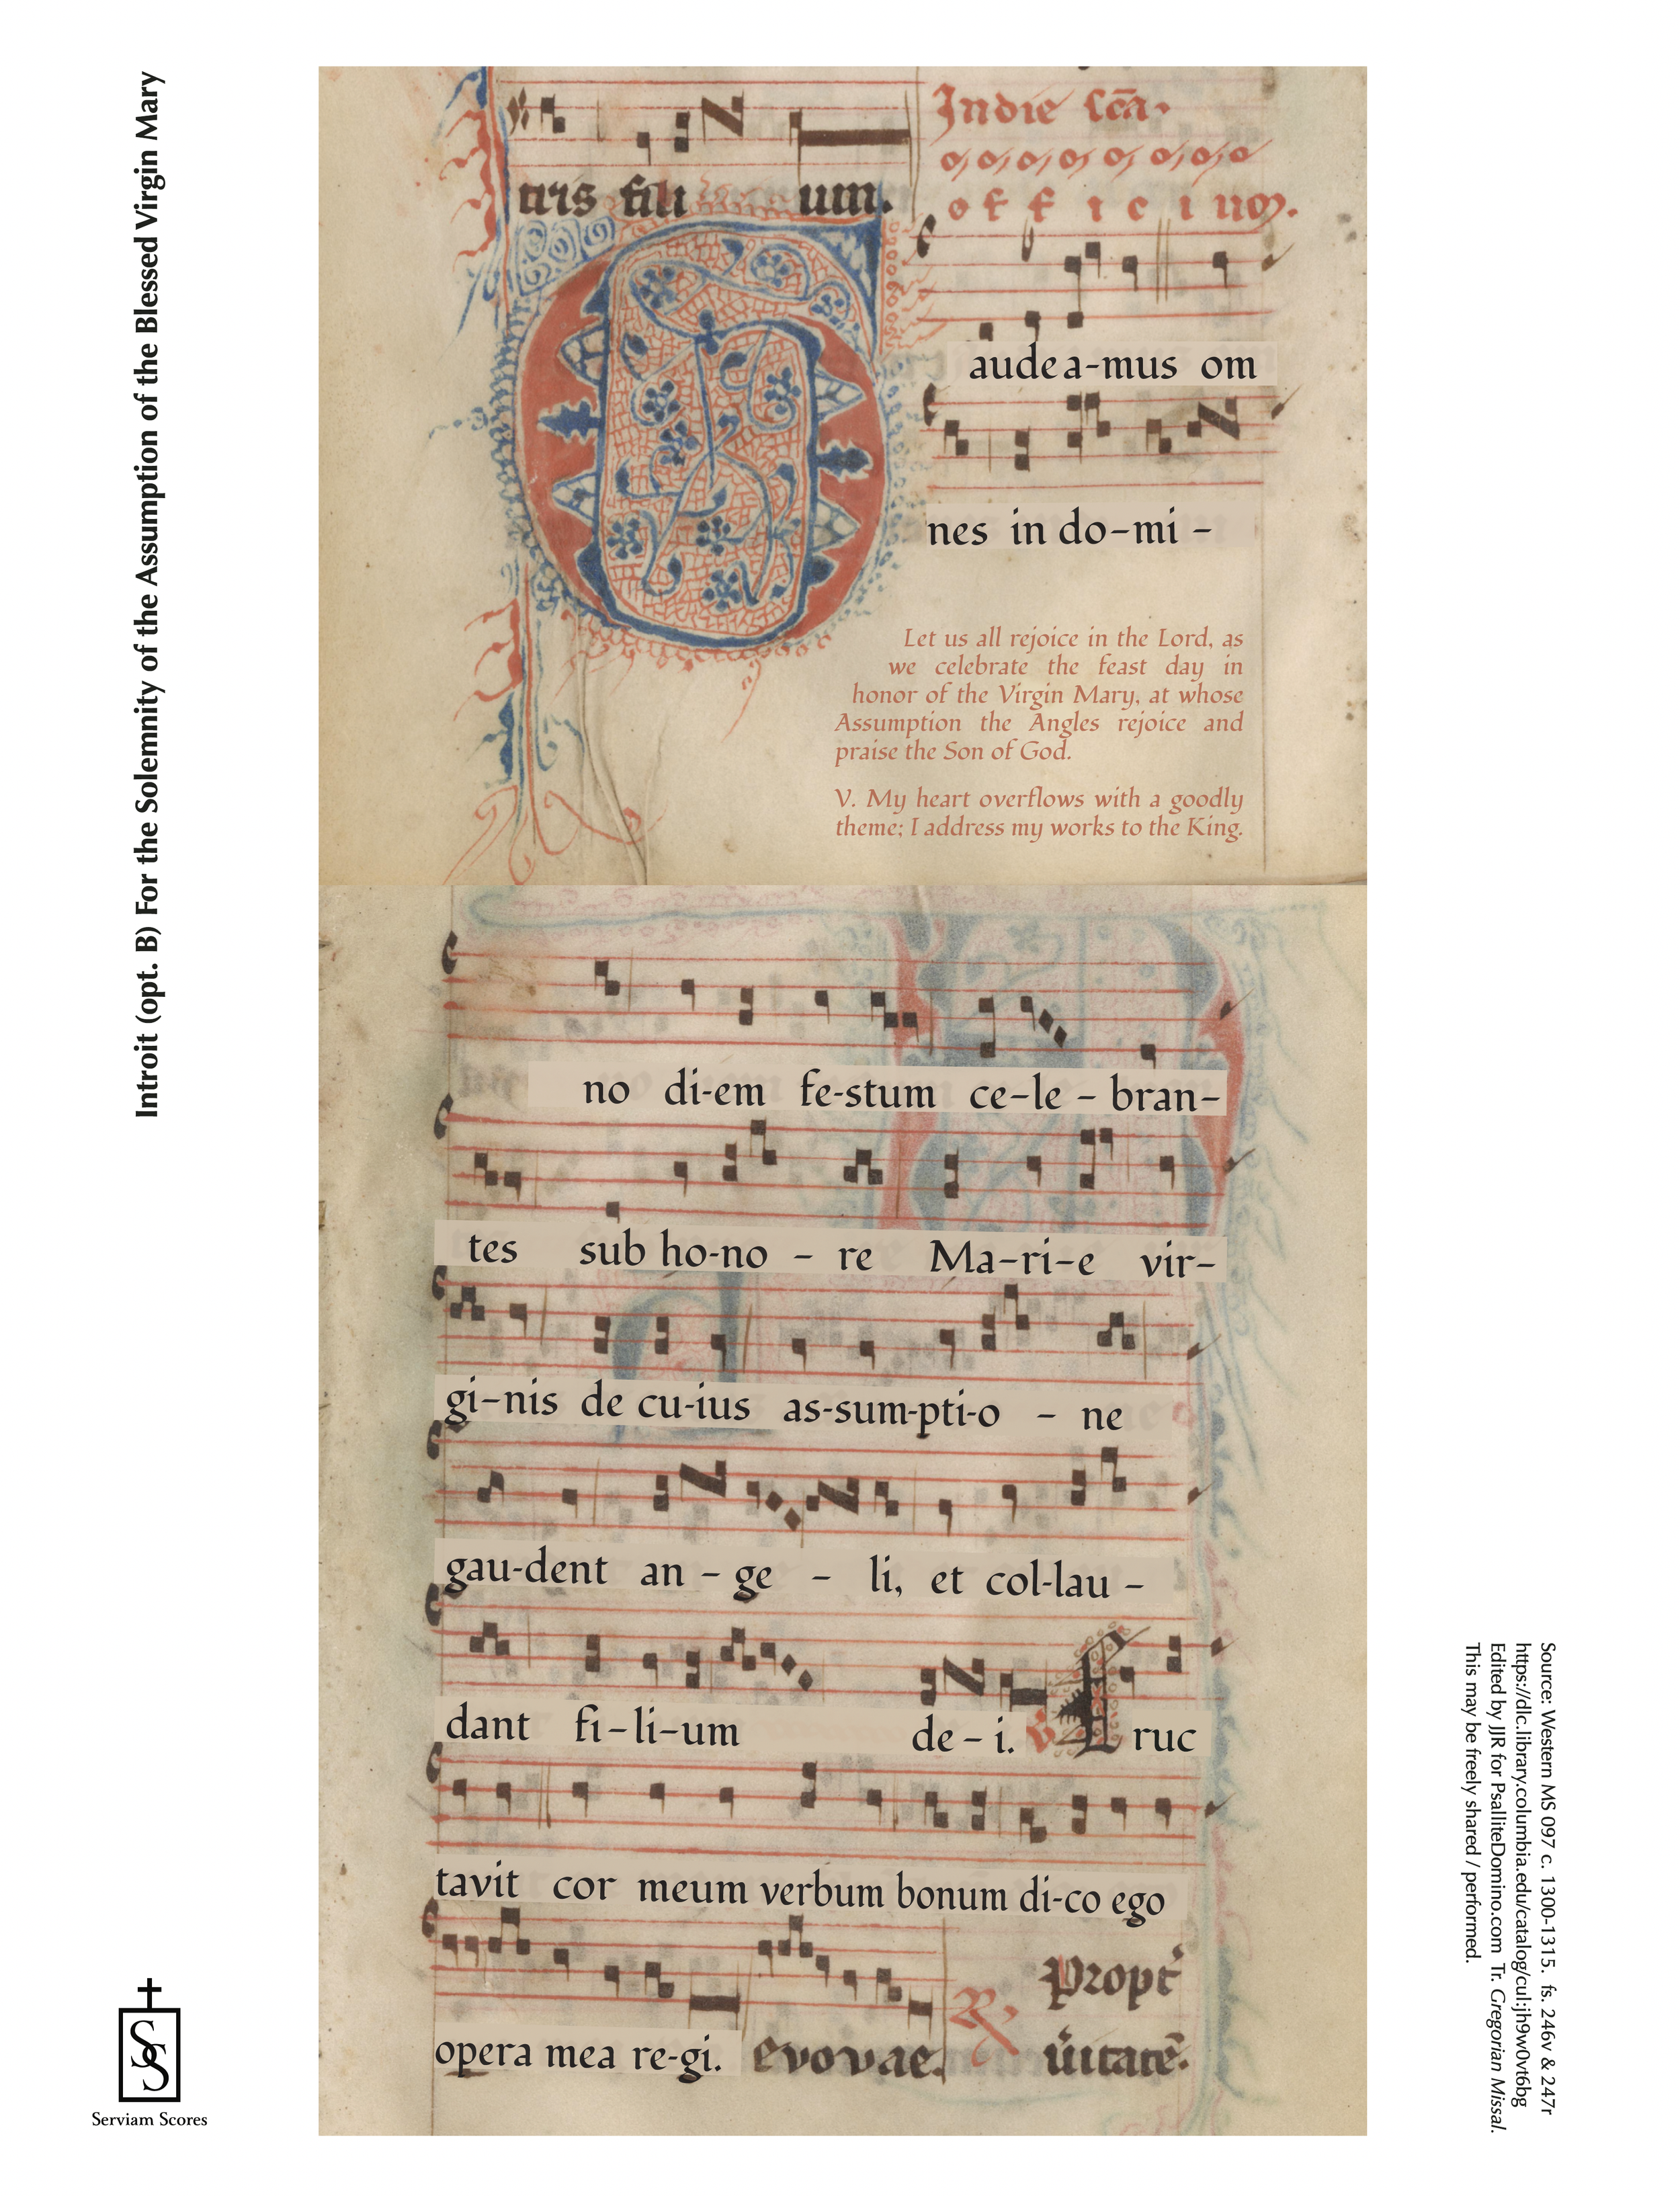 Introit (opt. B) For the Solemnity of the Assumption of the Blessed Virgin Mary
In die scā.
tris fili um.
officium.
audea-mus om
nes in do-mi -
Let us all rejoice in the Lord, as
we celebrate the feast day in
honor of the Virgin Mary, at whose
Assumption the Angles rejoice and
praise the Son of God.
V. My heart overflows with a goodly
theme; I address my works to the King.
no di-em fe-stum ce-le - bran-
tes sub ho-no - re Ma-ri-e vir-
gi-nis de cu-ius as-sum-pti-o - ne
gau-dent an - ge - li, et col-lau -
dant fi-li-um de - i. V Eruc
tavit cor meum verbum bonum di-co ego
opera mea re-gi. evovae.
Source: Western MS 097 c. 1300-1315. fs. 246v & 247r
https://dlc.library.columbia.edu/catalog/cul:jh9w0vt6bg
Edited by JJR for PsalliteDomino.com Tr. Gregorian Missal.
This may be freely shared / performed.
SS
Serviam Scores